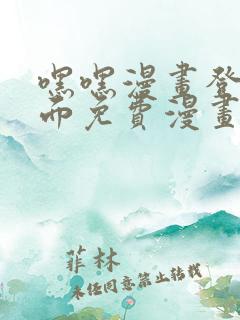 嘿嘿漫畫登
而免費漫畫
菲林
未经同意禁止转载